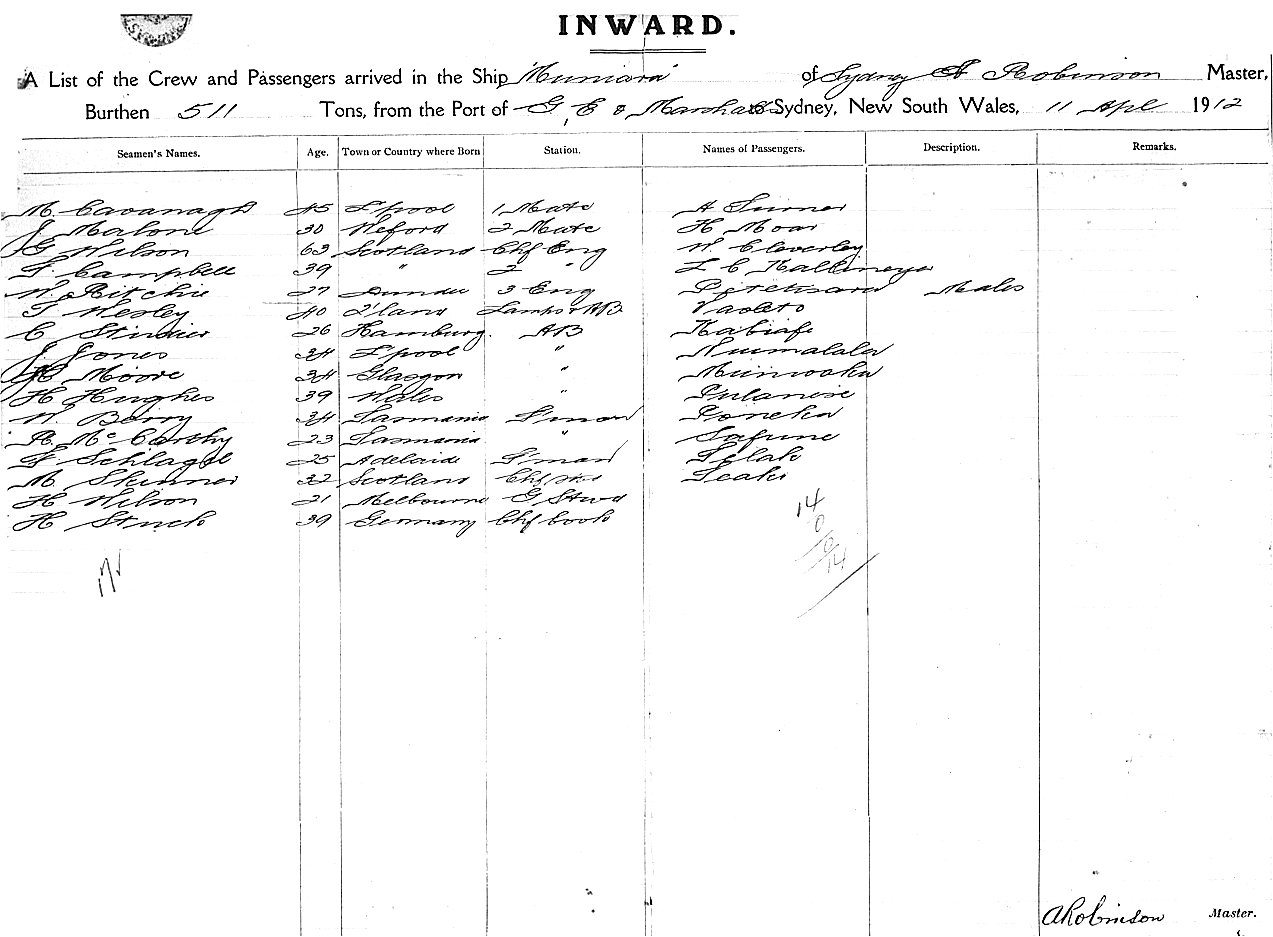 INWARD.
A List of the Crew and Passengers arrived in the Ship "Muniara" of Sydney A Robinson Master,
Burthen 511 Tons, from the Port of G, E & Marshalls Sydney, New South Wales, 11 Apl 1912
Seamen's Names. Age. Town or Country where Born Station. Names of Passengers. Description. Remarks.
M. Cavanagh 45 L'pool 1 Mate A Turner
J Malone 30 Wexford 2 Mate H Moar
G Wilson 63 Scotland Chf Eng W Cleverley
F. Campbell 39 " 2 " L C
W. Ritchie 27 Dundee 3 Eng Males
T Wesley 40 Q'land Lamps & AB
C 26 Hamburg. AB Kabiafe
J Jones 34 L'pool "
H Moore 34 Glasgow "
H Hughes 39 Wales "
W. Berry 34 Tasmania F'man Poneka
R McCarthy 23 Tasmania " Safune
F. Schlagel 25 Adelaide F'man
M Skinner 32 Scotland Chf Leaki
H Wilson 21 Melbourne G Stwd
H Stuck 39 Germany Chf Cook
14
0
0
14
17
ARobinson Master.